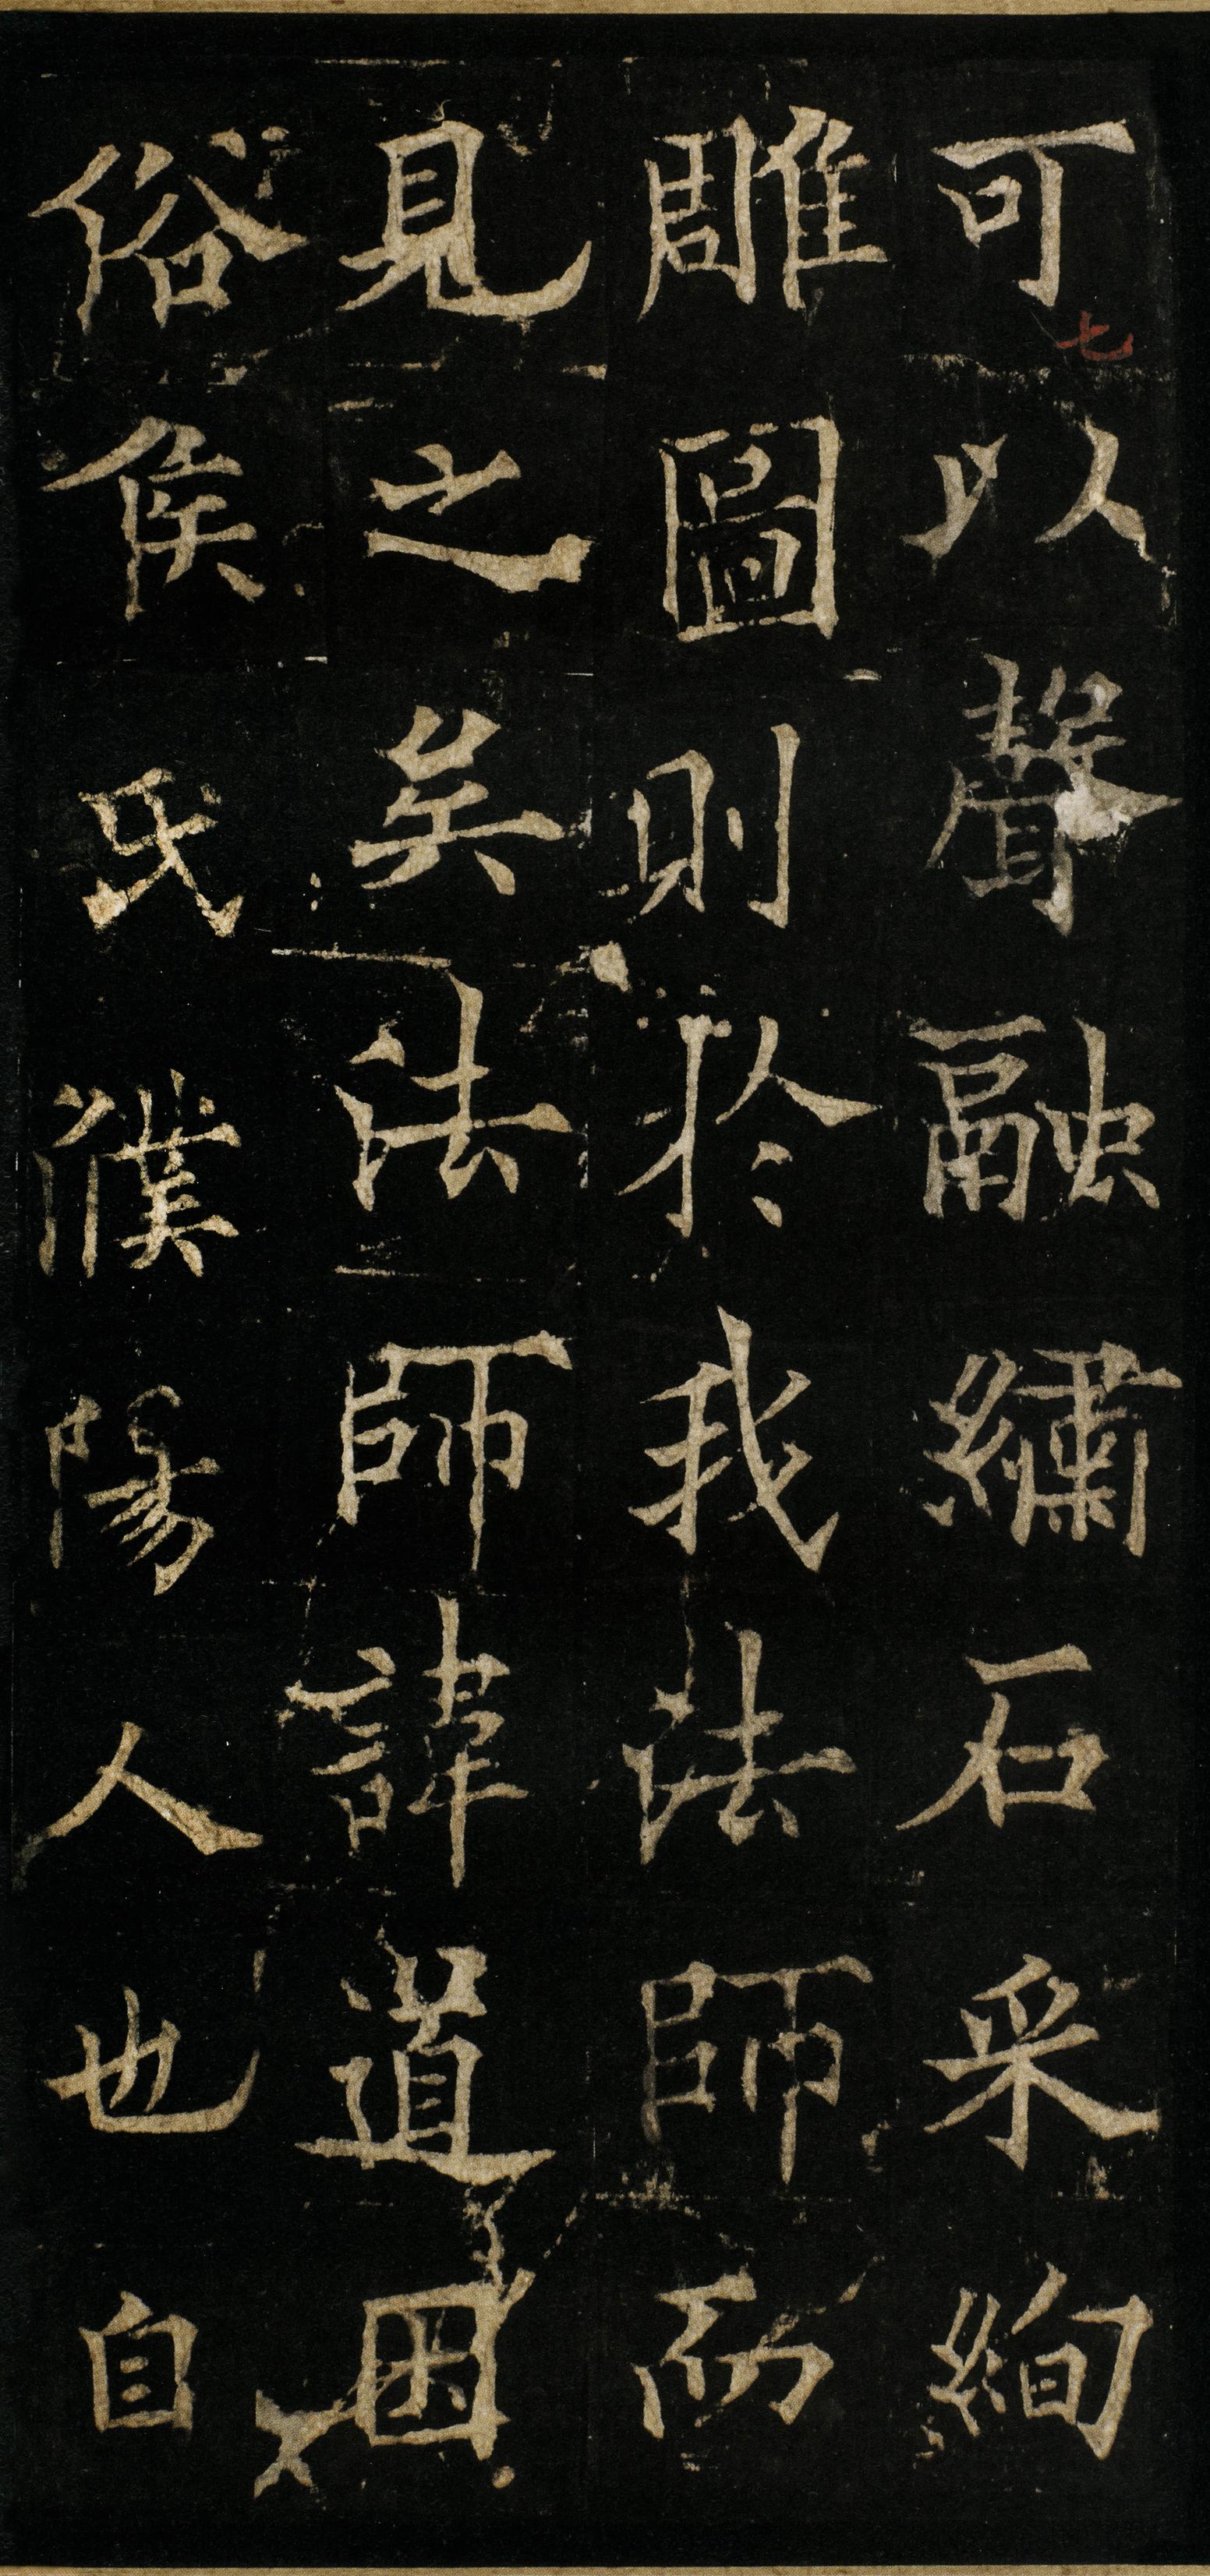 可以聲融繡石采絢
七
雕圖則於我法師而
見之矣法師諱道因
俗侯氏濮陽人也自